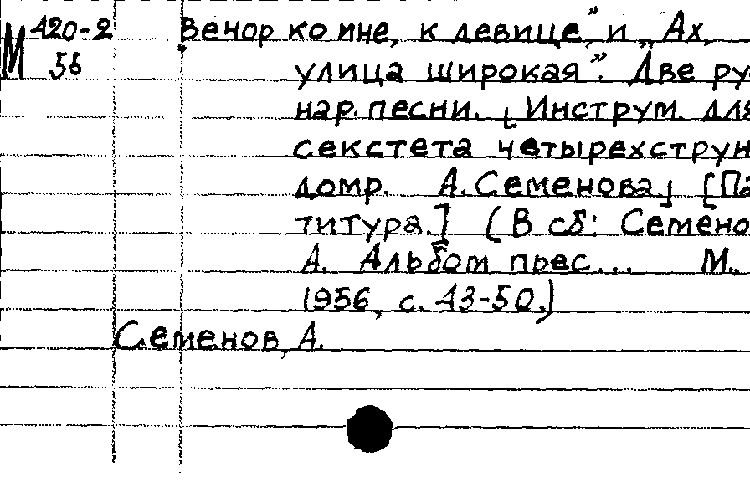 М 420-2 „Венор ко мне, к девице” и „Ах,
56 улица широкая”. Две ру
нар. песни. [Инструм. для
секстета четырехструн
домр. А. Семенова] [Па
титура.] (В сб: Семено
А. Альбом пьес... М.
1956, с. 43-50.)
Семенов, А.